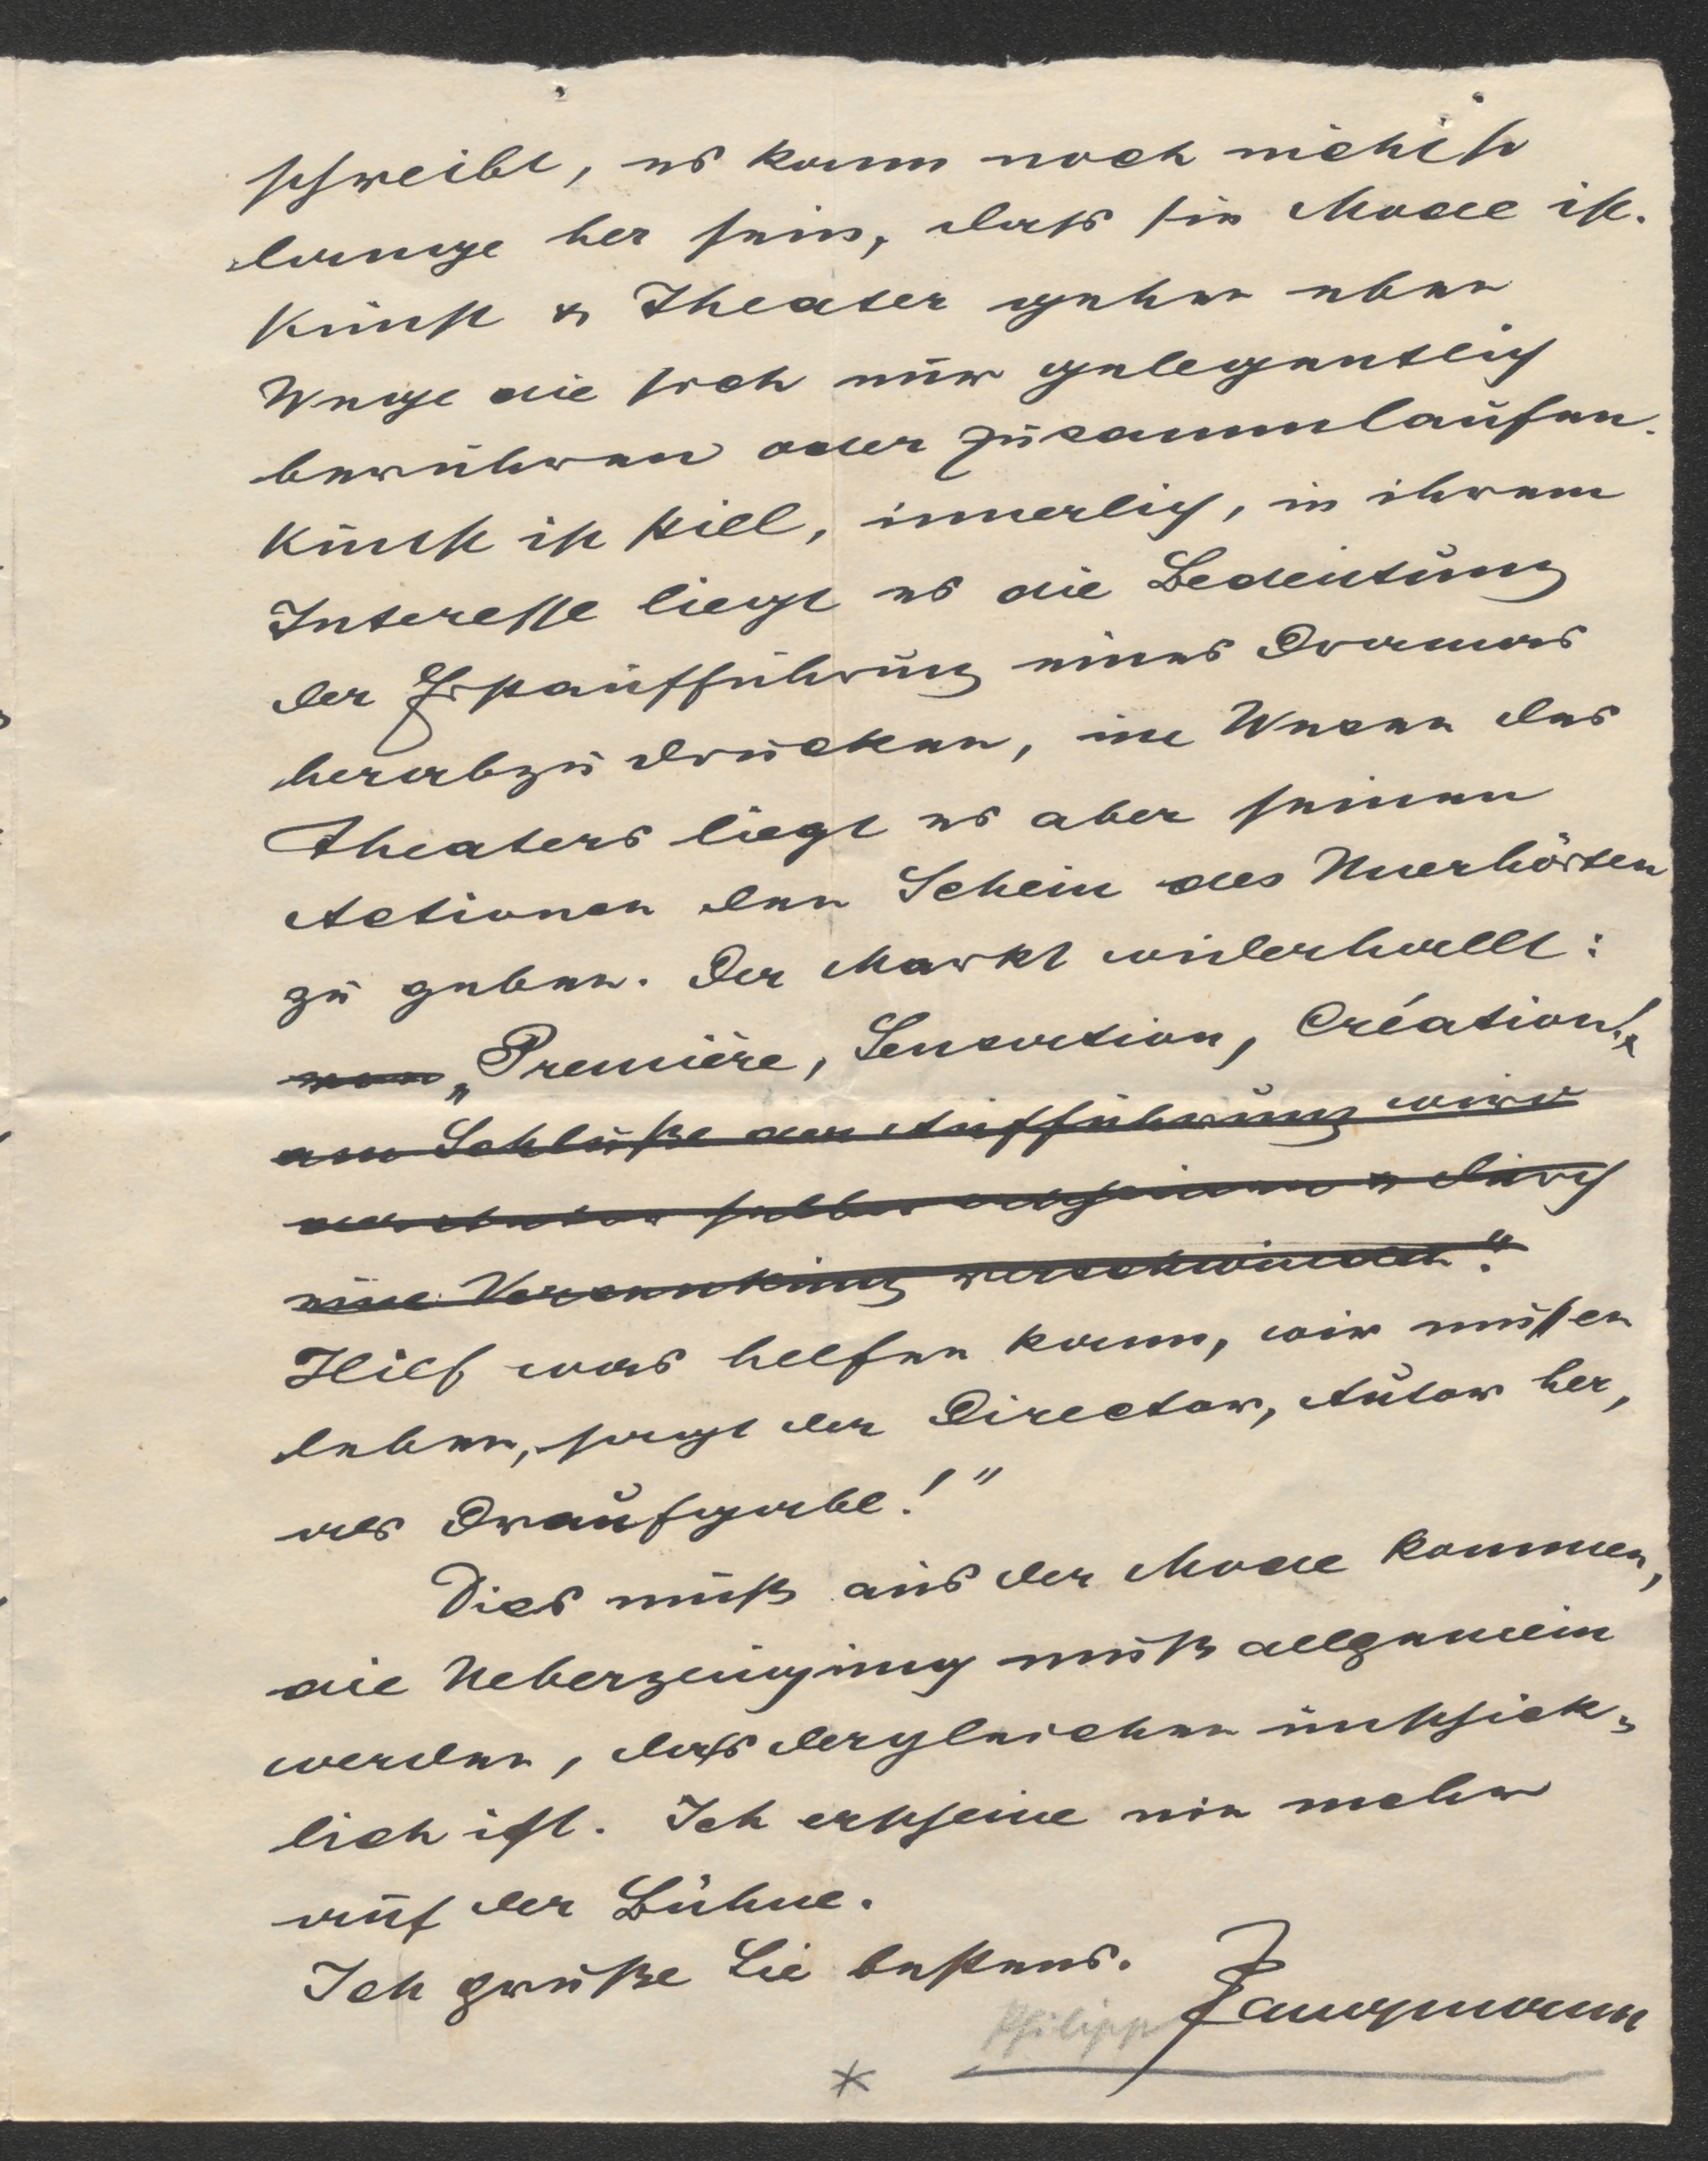 schreibt, es kann noch nicht so
lange her sein, dass sie Mode ist.
Kunst & Theater gehen eben
Wege die sich nur gelegentlich
berühren oder zusammlaufen.
Kunst ist still, innerlich, in ihrem
Interesse liegt es die Bedeutung
der Erstaufführung eines Dramas
herabzudrücken, im Wesen des
Theaters liegt es aber seinen
Actionen den Schein des Unerhörten
zu geben. Der Markt widerhallt:
„Première, Sensation, Création!
am Schluße der Aufführung wird
der Autor selber erscheinen & durch
eine Versenkung verschwinden“.
Hilf was helfen kann, wir müssen
leben, sagt der Director, Autor her,
als Draufgabe!“
Dies muß aus der Mode kommen,
die Ueberzeugung muß allgemein
werden, dass dergleichen unschick-
lich ist. Ich erscheine nie mehr
auf der Bühne.
Ich grüße Sie bestens.
Philipp Langmann
*